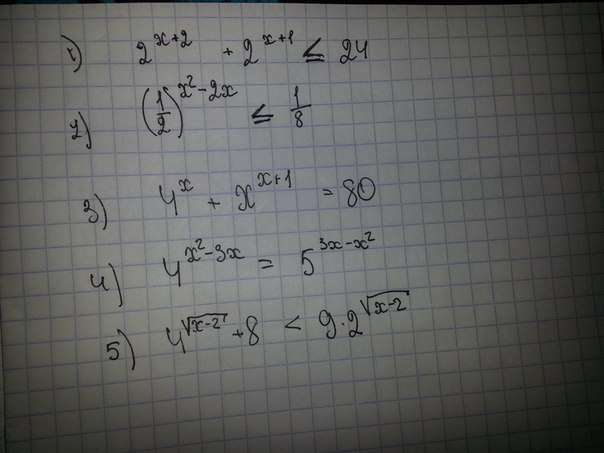 1) 2^{x+2} + 2^{x+1} ≤ 24
2) (1/2)^{x²-2x} ≤ 1/8
3) 4^x + x^{x+1} = 80
4) 4^{x²-3x} = 5^{3x-x²}
5) 4^{√(x-2)} + 8 < 9·2^{√(x-2)}